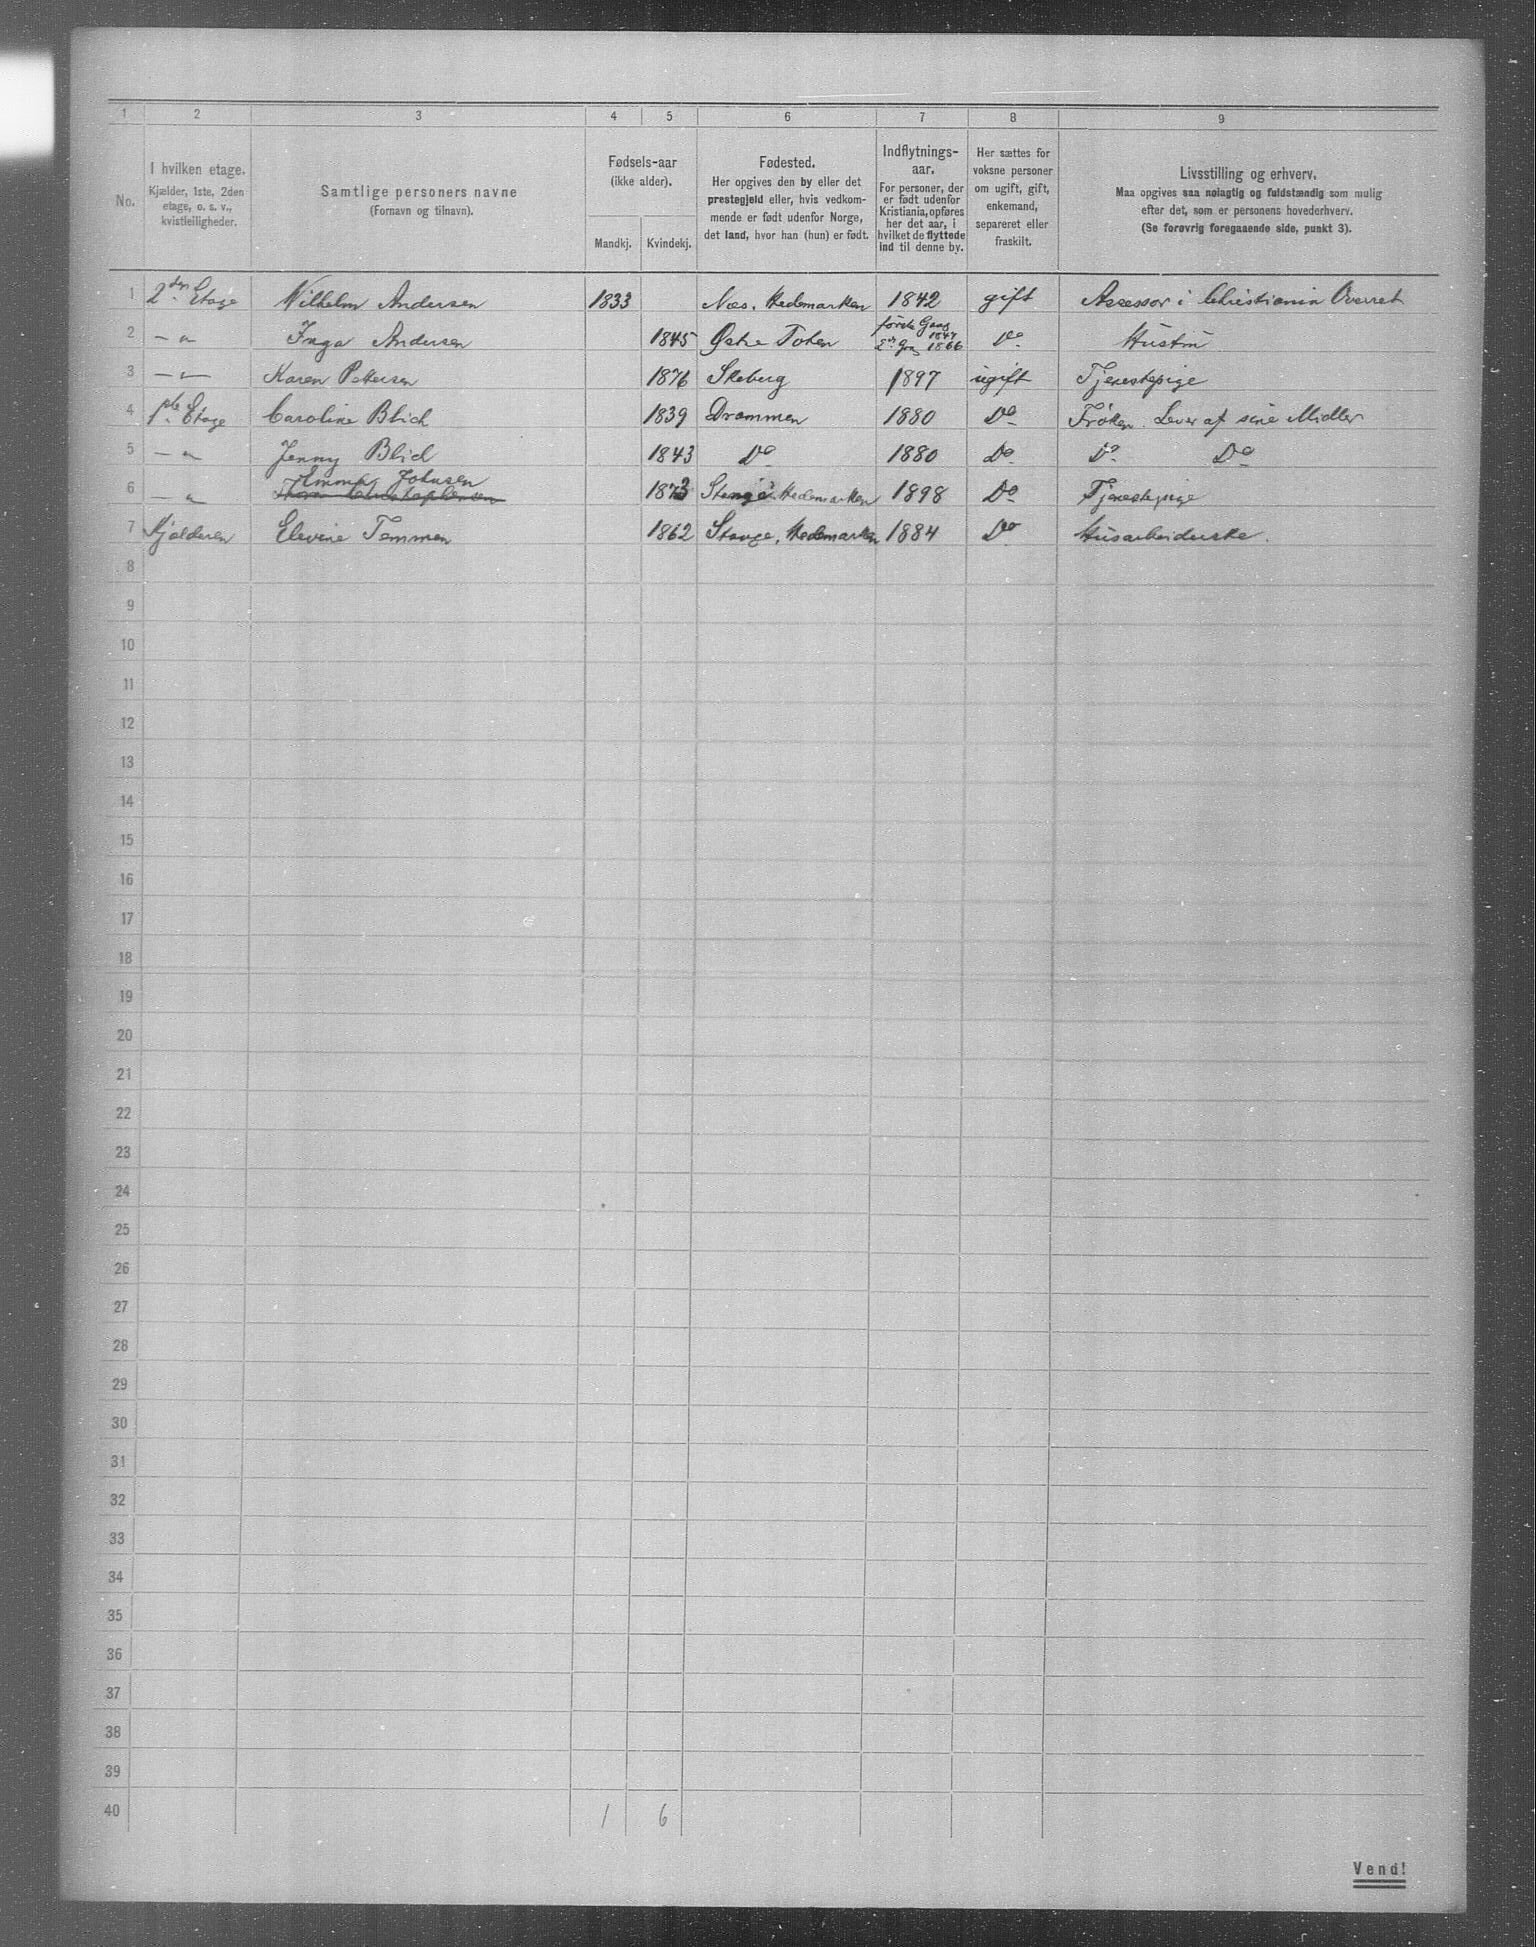 1 2 3 4 5 6 7 8 9
No.
I hvilken etage.
Kjælder, 1ste, 2den
etage, o. s. v.,
kvistleiligheder.
Samtlige personers navne
(Fornavn og tilnavn).
Fødsels-aar
(ikke alder).
Mandkj. Kvindekj.
Fødested.
Her opgives den by eller det
prestegjeld eller, hvis vedkom-
mende er født udenfor Norge,
det land, hvor han (hun) er født.
Indflytnings-
aar.
For personer, der
er født udenfor
Kristiania, opføres
her det aar, i
hvilket de flyttede
ind til denne by.
Her sættes for
voksne personer
om ugift, gift,
enkemand,
separeret eller
fraskilt.
Livsstilling og erhverv.
Maa opgives saa nøiagtig og fuldstændig som mulig
efter det, som er personens hovederhverv.
(Se forøvrig foregaaende side, punkt 3).
1 2den Etage Wilhelm Andersen 1833 Næs, Hedemarken 1842 gift Assessor i Christiania Overret
2 — " Inga Andersen 1845 Østre Toten første Gang 1847 2den Gang 1866 Do Hustru
3 — " — Karen Pettersen 1876 Skeberg 1897 ugift Tjenestepige
4 1ste Etage Caroline Blich 1839 Drammen 1880 Do Frøken. Lever af sine Midler
5 — " Jenny Blich 1843 Do 1880 Do Do Do
Emma Johnsen
6 — " 1873 Stange Hedemarken 1898 Do Tjenestepige
7 Kjælderen Elevine Temmen 1862 Stange, Hedemarken 1884 Do Husarbeiderske.
8
9
10
11
12
13
14
15
16
17
18
19
20
21
22
23
24
25
26
27
28
29
30
31
32
33
34
35
36
37
38
39
40 1 6
Vend!